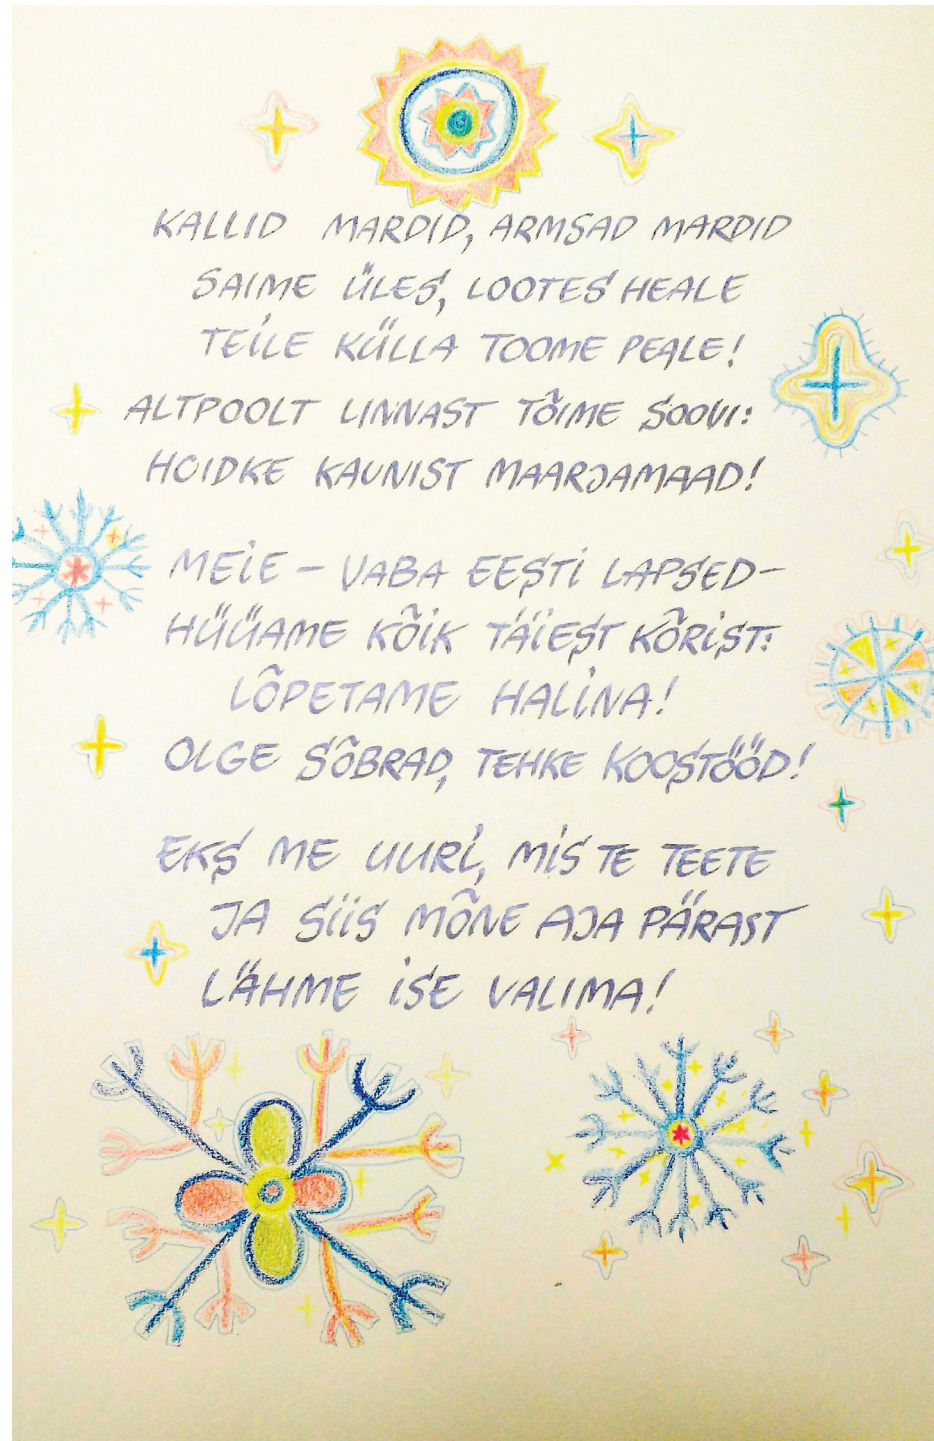 KALLID MARDID, ARMSAD MARDID
SAIME ÜLES, LOOTES HEALE
TEILE KÜLLA TOOME PEALE!
ALTPOOLT LINNAST TÕIME SOOVI:
HOIDKE KAUNIST MAARJAMAAD!
MEIE - VABA EESTI LAPSED-
HÜÜAME KÕIK TÄIEST KÕRIST:
LÕPETAME HALINA!
OLGE SÕBRAD, TEHKE KOOSTÖÖD!
EKS ME UURI, MIS TE TEETE
JA SIIS MÕNE AJA PÄRAST
LÄHME ISE VALIMA!